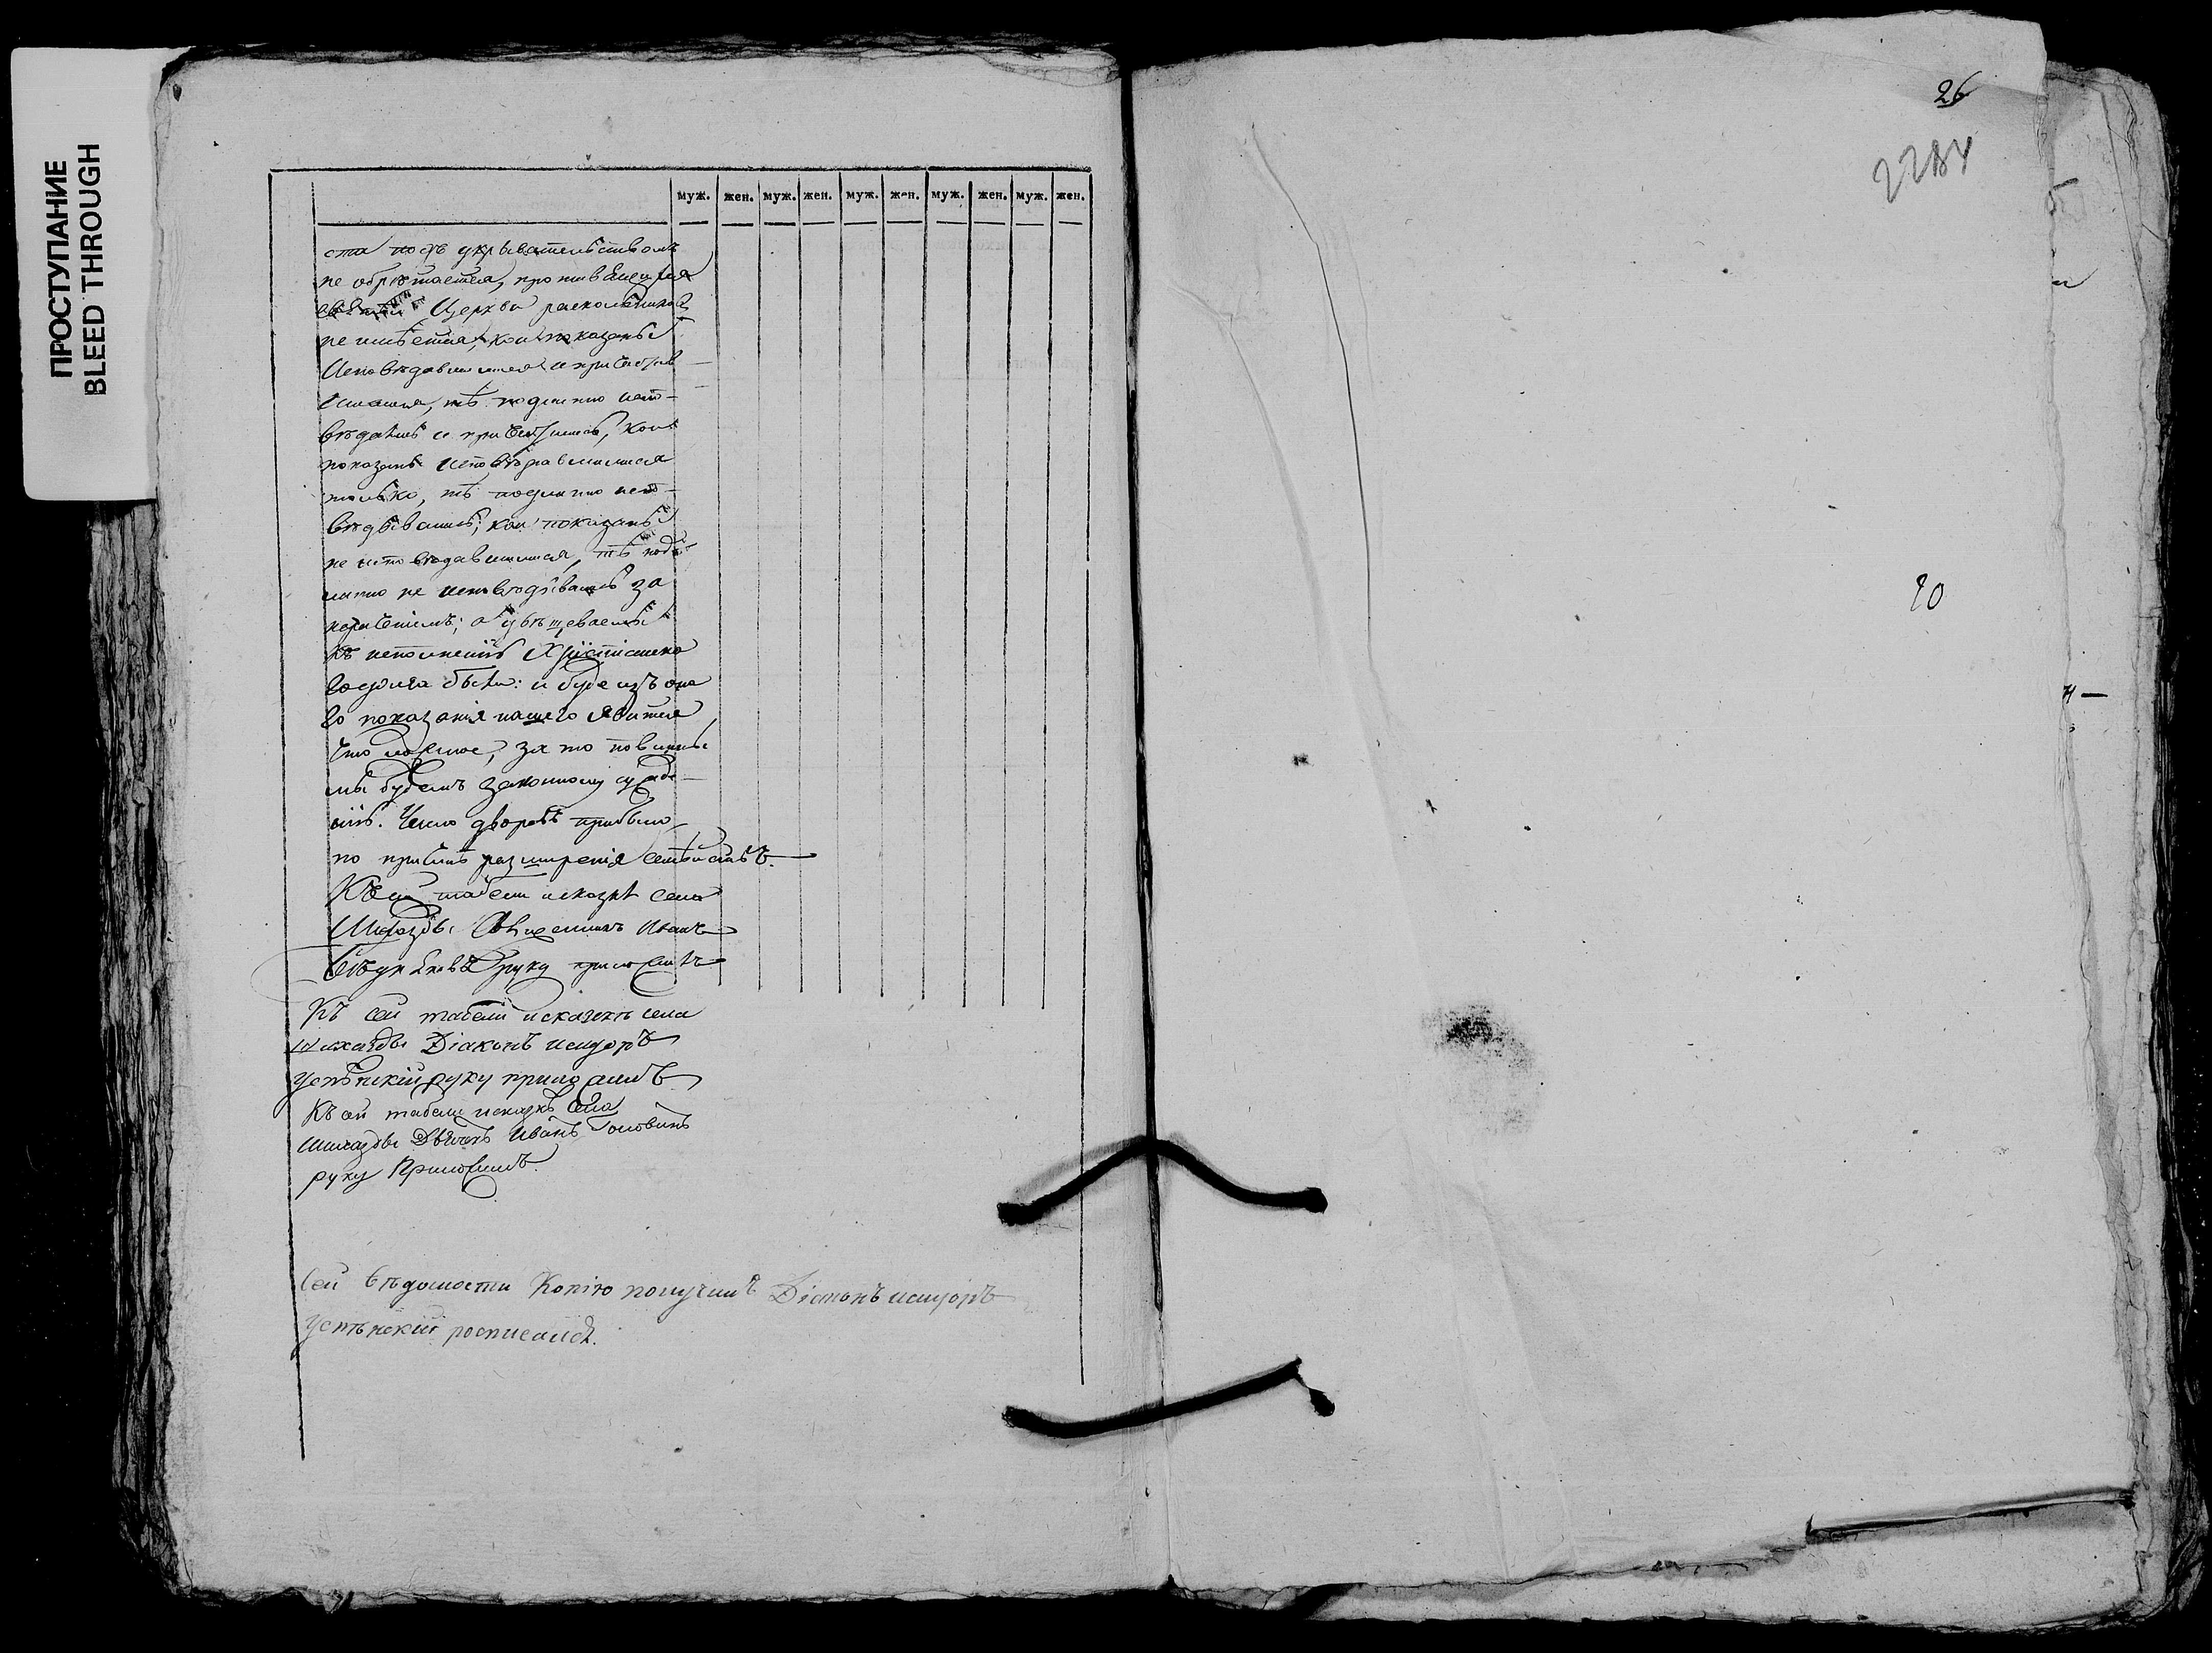 ПРОСТУПАНИЕ
BLEED THROUGH
муж. жен. муж. жен. муж. жен. муж. жен. муж. жен.
ста подъ укрывательствомъ
не обрѣтается, противящихся
Церкви раскольниковъ
не имѣется, кои показаны
Исповѣдавшимися и приобщив-
шимися, тѣ подлинно испо-
вѣдались и приобщились, кои
показаны исповѣдавшимися
только, тѣ подлинно испо-
вѣдывались; кои показаны
не исповѣдавшимися, тѣ под-
линно не исповѣдывались за
нераченіемъ; а увѣщеваемы
къ исполненію Христіанска
го долга были: и буде изъ она
го показанія нашего явится
что ложное, за то повинны
мы будемъ законному сужде-
нію. Число дворовъ прибыло
по причинѣ разширенія семействъ.
Къ сей табели и сказкѣ села
Священникъ Иванъ
руку приложилъ
Къ сей табели и сказкѣ села
Діаконъ Исидоръ
Успѣнскій руку приложилъ
Къ сей табели и сказкѣ села
Дьячекъ Иванъ Головинъ
руку Приложилъ.
Сей вѣдомости Копію получилъ Діаконъ исидоръ
Успѣнскій росписался.
26
2284
20